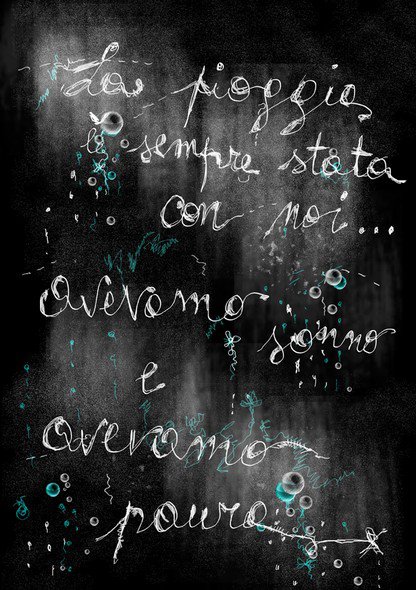 La pioggia
è sempre stata
con noi...
avevamo
sonno
e
avevamo
paura